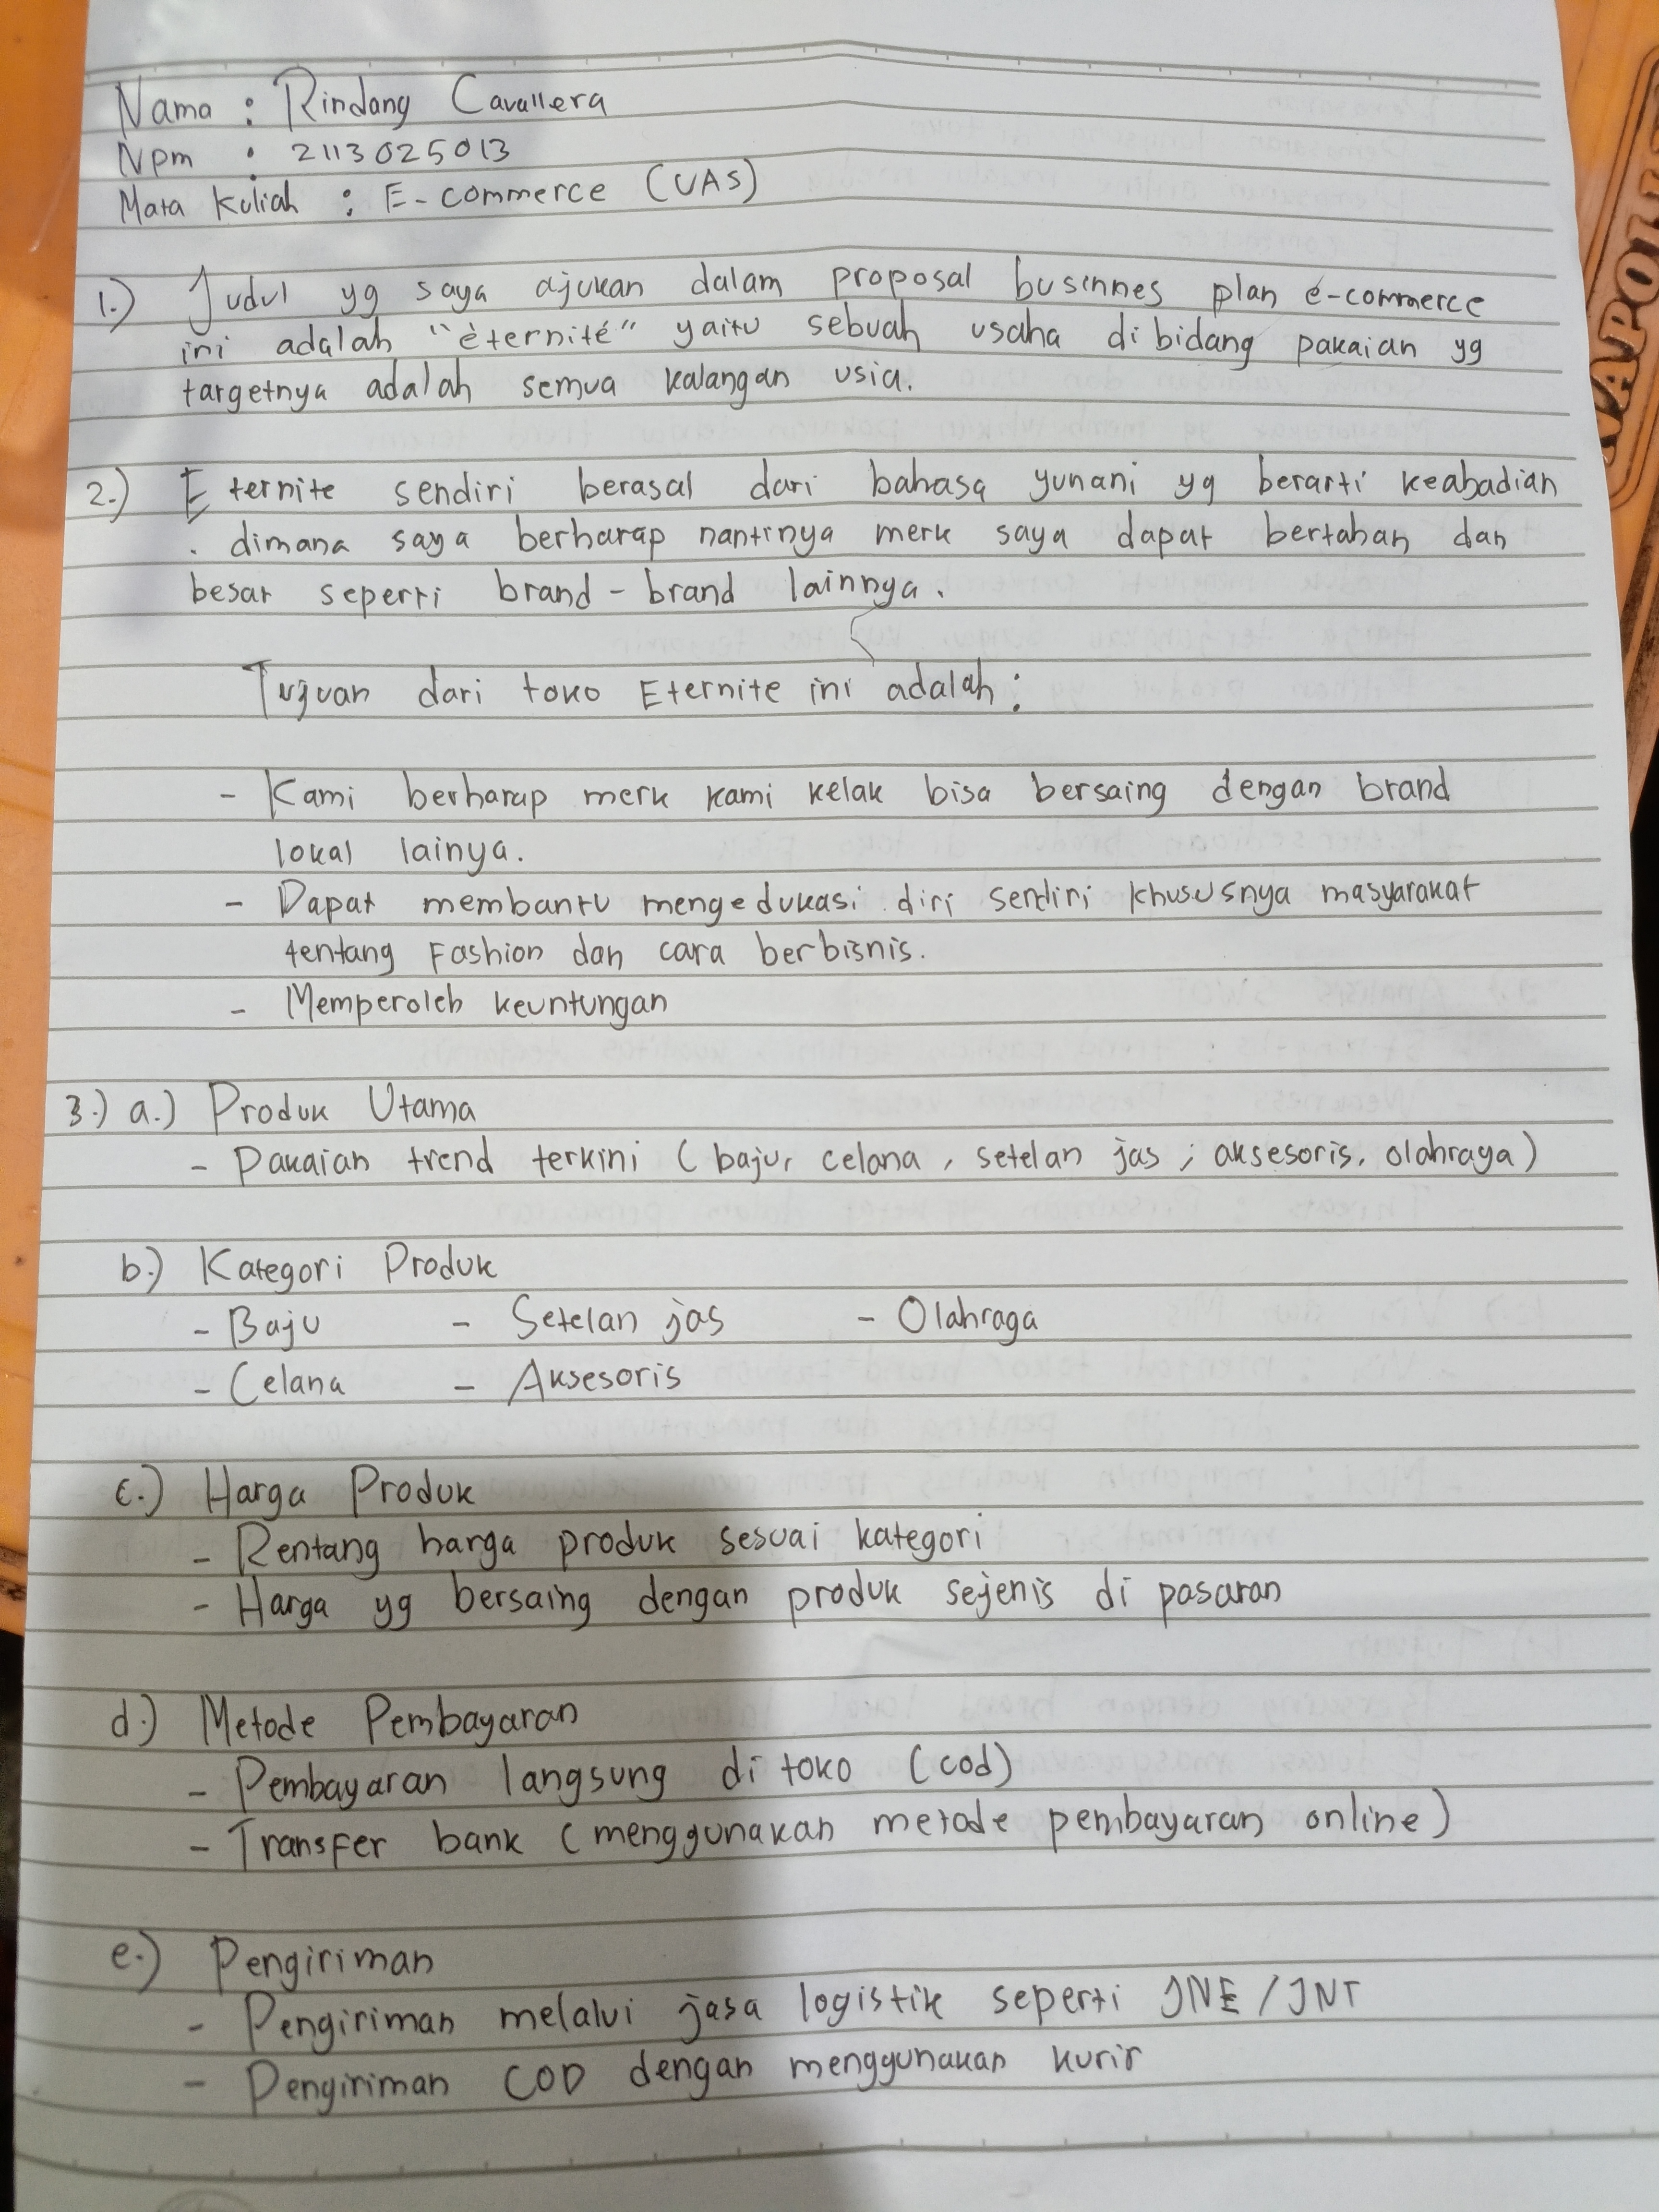 Nama : Rindang Cavallera
Npm : 2113025013
Mata Kuliah : E-commerce (UAS)
1.) Judul yg saya ajukan dalam proposal businnes plan e-commerce
ini adalah "èternité" yaitu sebuah usaha dibidang pakaian yg
targetnya adalah semua kalangan usia.
2.) Eternite sendiri berasal dari bahasa yunani yg berarti keabadian
. dimana saya berharap nantinya merk saya dapat bertahan dan
besar seperti brand-brand lainnya.
Tujuan dari toko Eternite ini adalah:
- Kami berharap merk kami kelak bisa bersaing dengan brand
lokal lainya.
- Dapat membantu mengedukasi diri sendiri khususnya masyarakat
tentang Fashion dan cara berbisnis.
- Memperoleh keuntungan
3.) a.) Produk Utama
- Pakaian trend terkini (baju, celana, setelan jas, aksesoris, olahraga)
b.) Kategori Produk
- Baju - Setelan jas - Olahraga
- Celana - Aksesoris
c.) Harga Produk
- Rentang harga produk sesuai kategori
- Harga yg bersaing dengan produk sejenis di pasaran
d.) Metode Pembayaran
- Pembayaran langsung di toko (cod)
- Transfer bank (menggunakan metode pembayaran online)
e.) Pengiriman
- Pengiriman melalui jasa logistik seperti JNE/JNT
- Pengiriman COD dengan menggunakan kurir